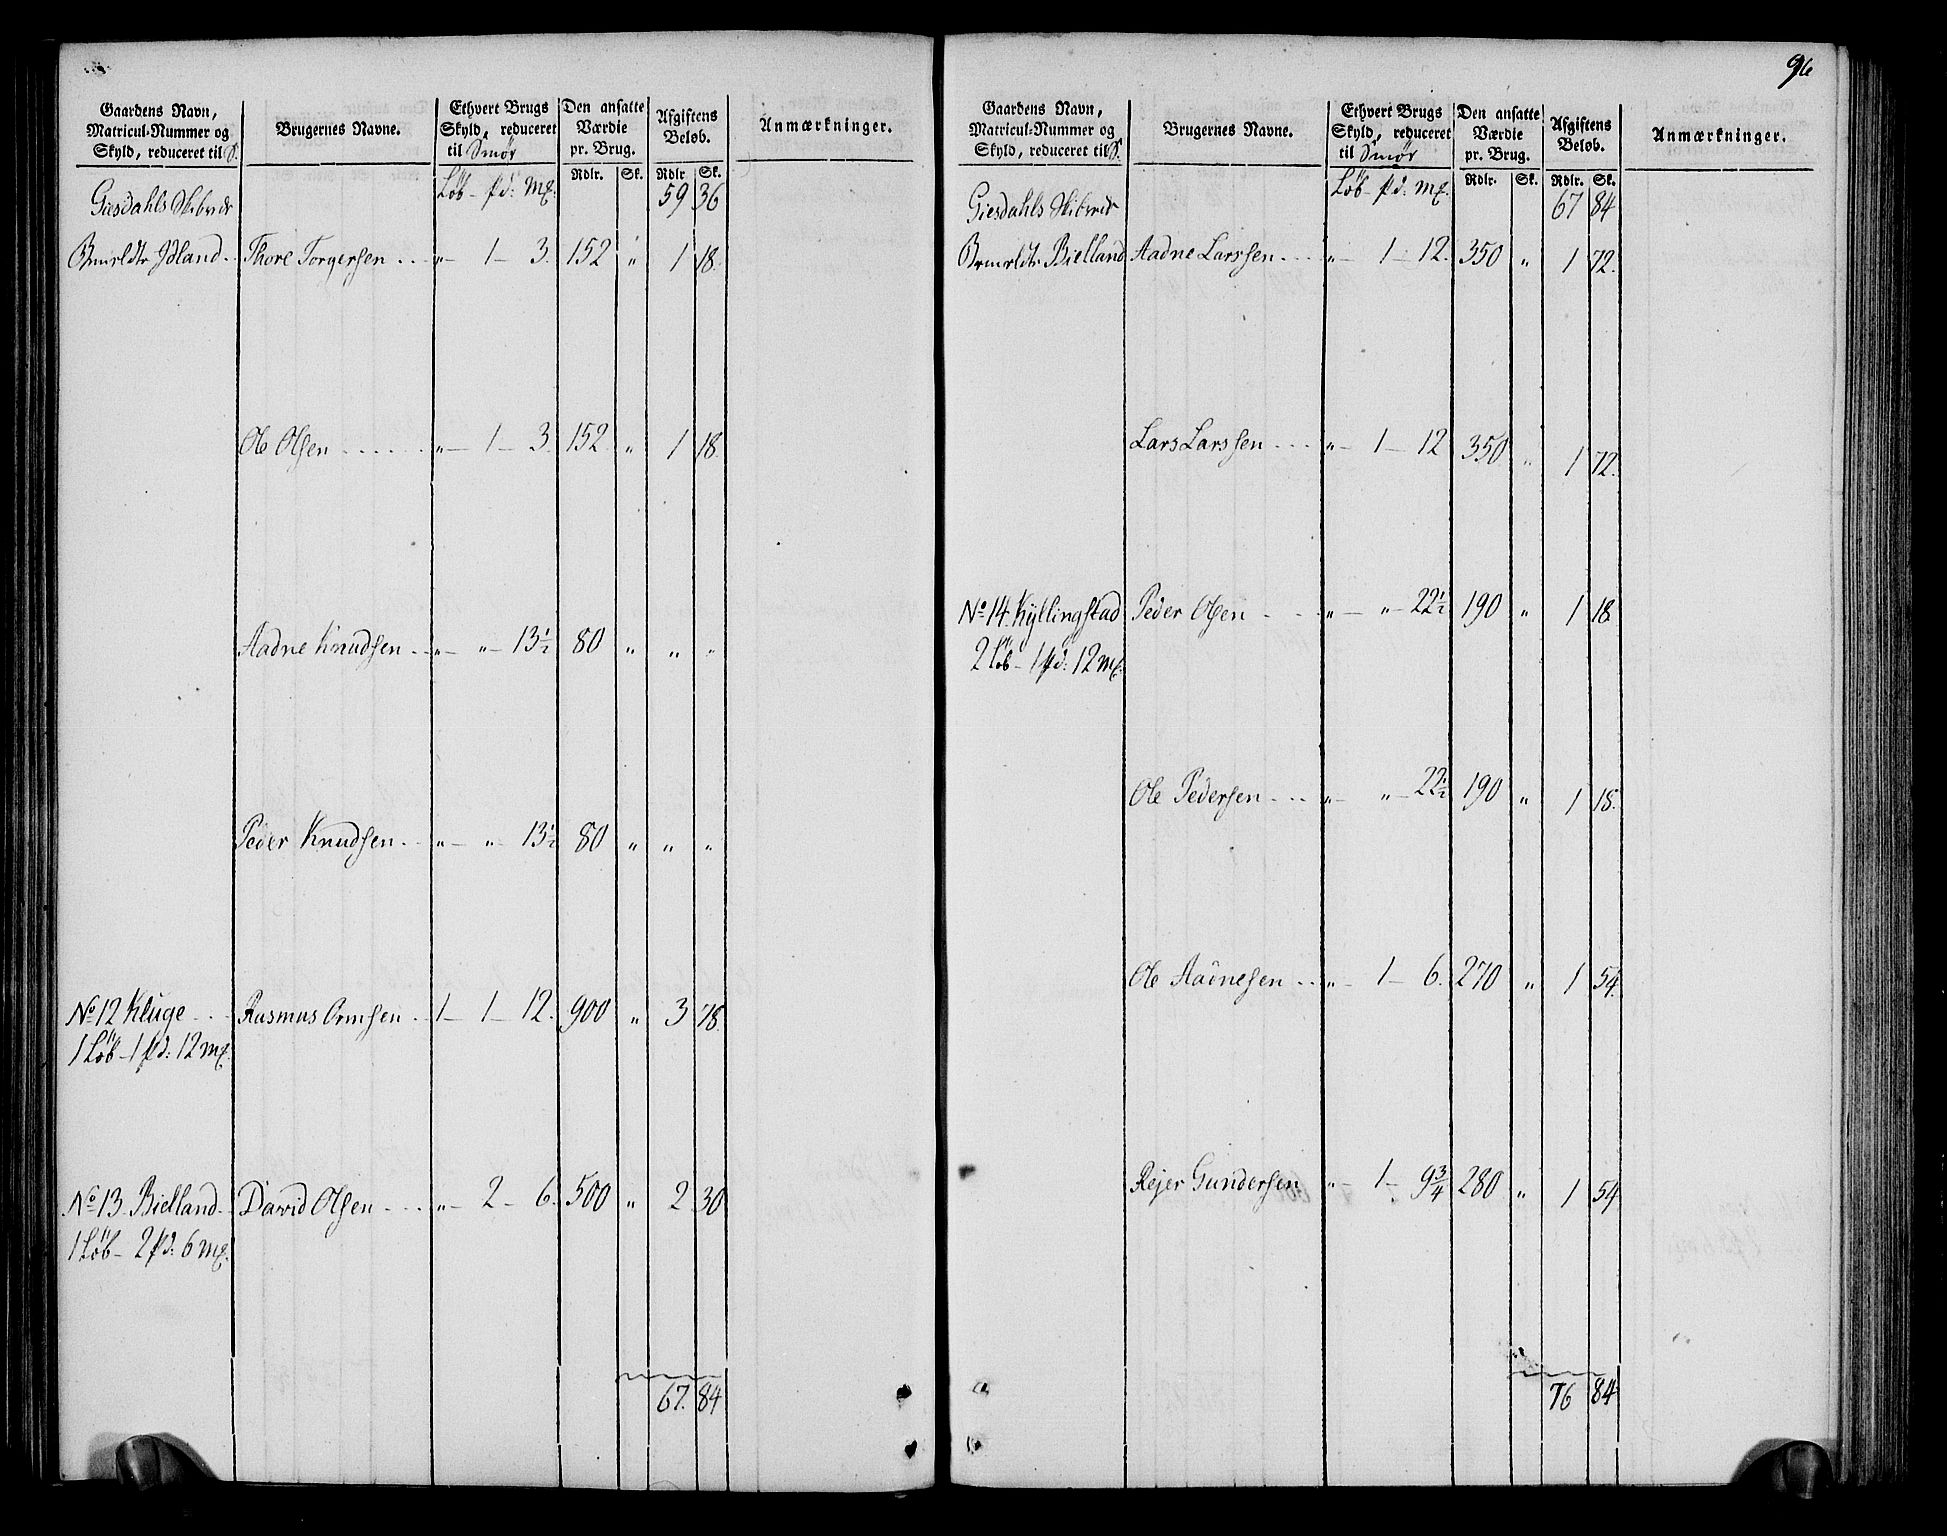 96
Gaardens Navn, Matricul-Nummer og Skyld, reduceret til S. | Brugernes Navne. | Ethvert Brugs Skyld, reduceret til Smør | Den ansatte Værdie pr. Brug. | Afgiftens Beløb. | Anmærkninger.
Rdlr. Sk. Rdlr. Sk.
Giesdahls Skibrede Løb - pd: Mg. 59 36
Idland Thore Torgersen „ 1 - 3. 152 „ 1 18.
Ole Olsen „ 1 - 3. 152 „ 1 18.
Aadne Knudsen „ „ 13½ 80 „ „ „
Peder Knudsen „ „ 13½ 80 „ „ „
No 12 Kluge Rasmus Ormsen 1 - 1 - 12. 900 „ 3 78.
1 Løb - 1 pd: 12 Mg.
No 13 Bielland David Olsen „ 2 - 6. 500 „ 2 30
1 Løb - 2 pd: 6 Mg.
67. 84
Gaardens Navn, Matricul-Nummer og Skyld, reduceret til S. | Brugernes Navne. | Ethvert Brugs Skyld, reduceret til Smør | Den ansatte Værdie pr. Brug. | Afgiftens Beløb. | Anmærkninger.
Rdlr. Sk. Rdlr. Sk.
Giesdahls Skibrede Løb - pd: Mg. 67 84
Bielland Aadne Larssen „ 1 - 12. 350 „ 1 72.
Lars Larssen „ 1 - 12 350 „ 1 72.
No 14 Kyllingstad Peder Olsen „ „ 22½ 190 „ 1 18
2 Løb - 1 pd: 12 Mg.
Ole Pedersen „ „ 22½ 190 „ 1 18.
Ole Aadnesen „ 1 - 6. 270 „ 1 54.
Rejer Gundersen „ 1 - 9¾ 280 „ 1 54
76 84